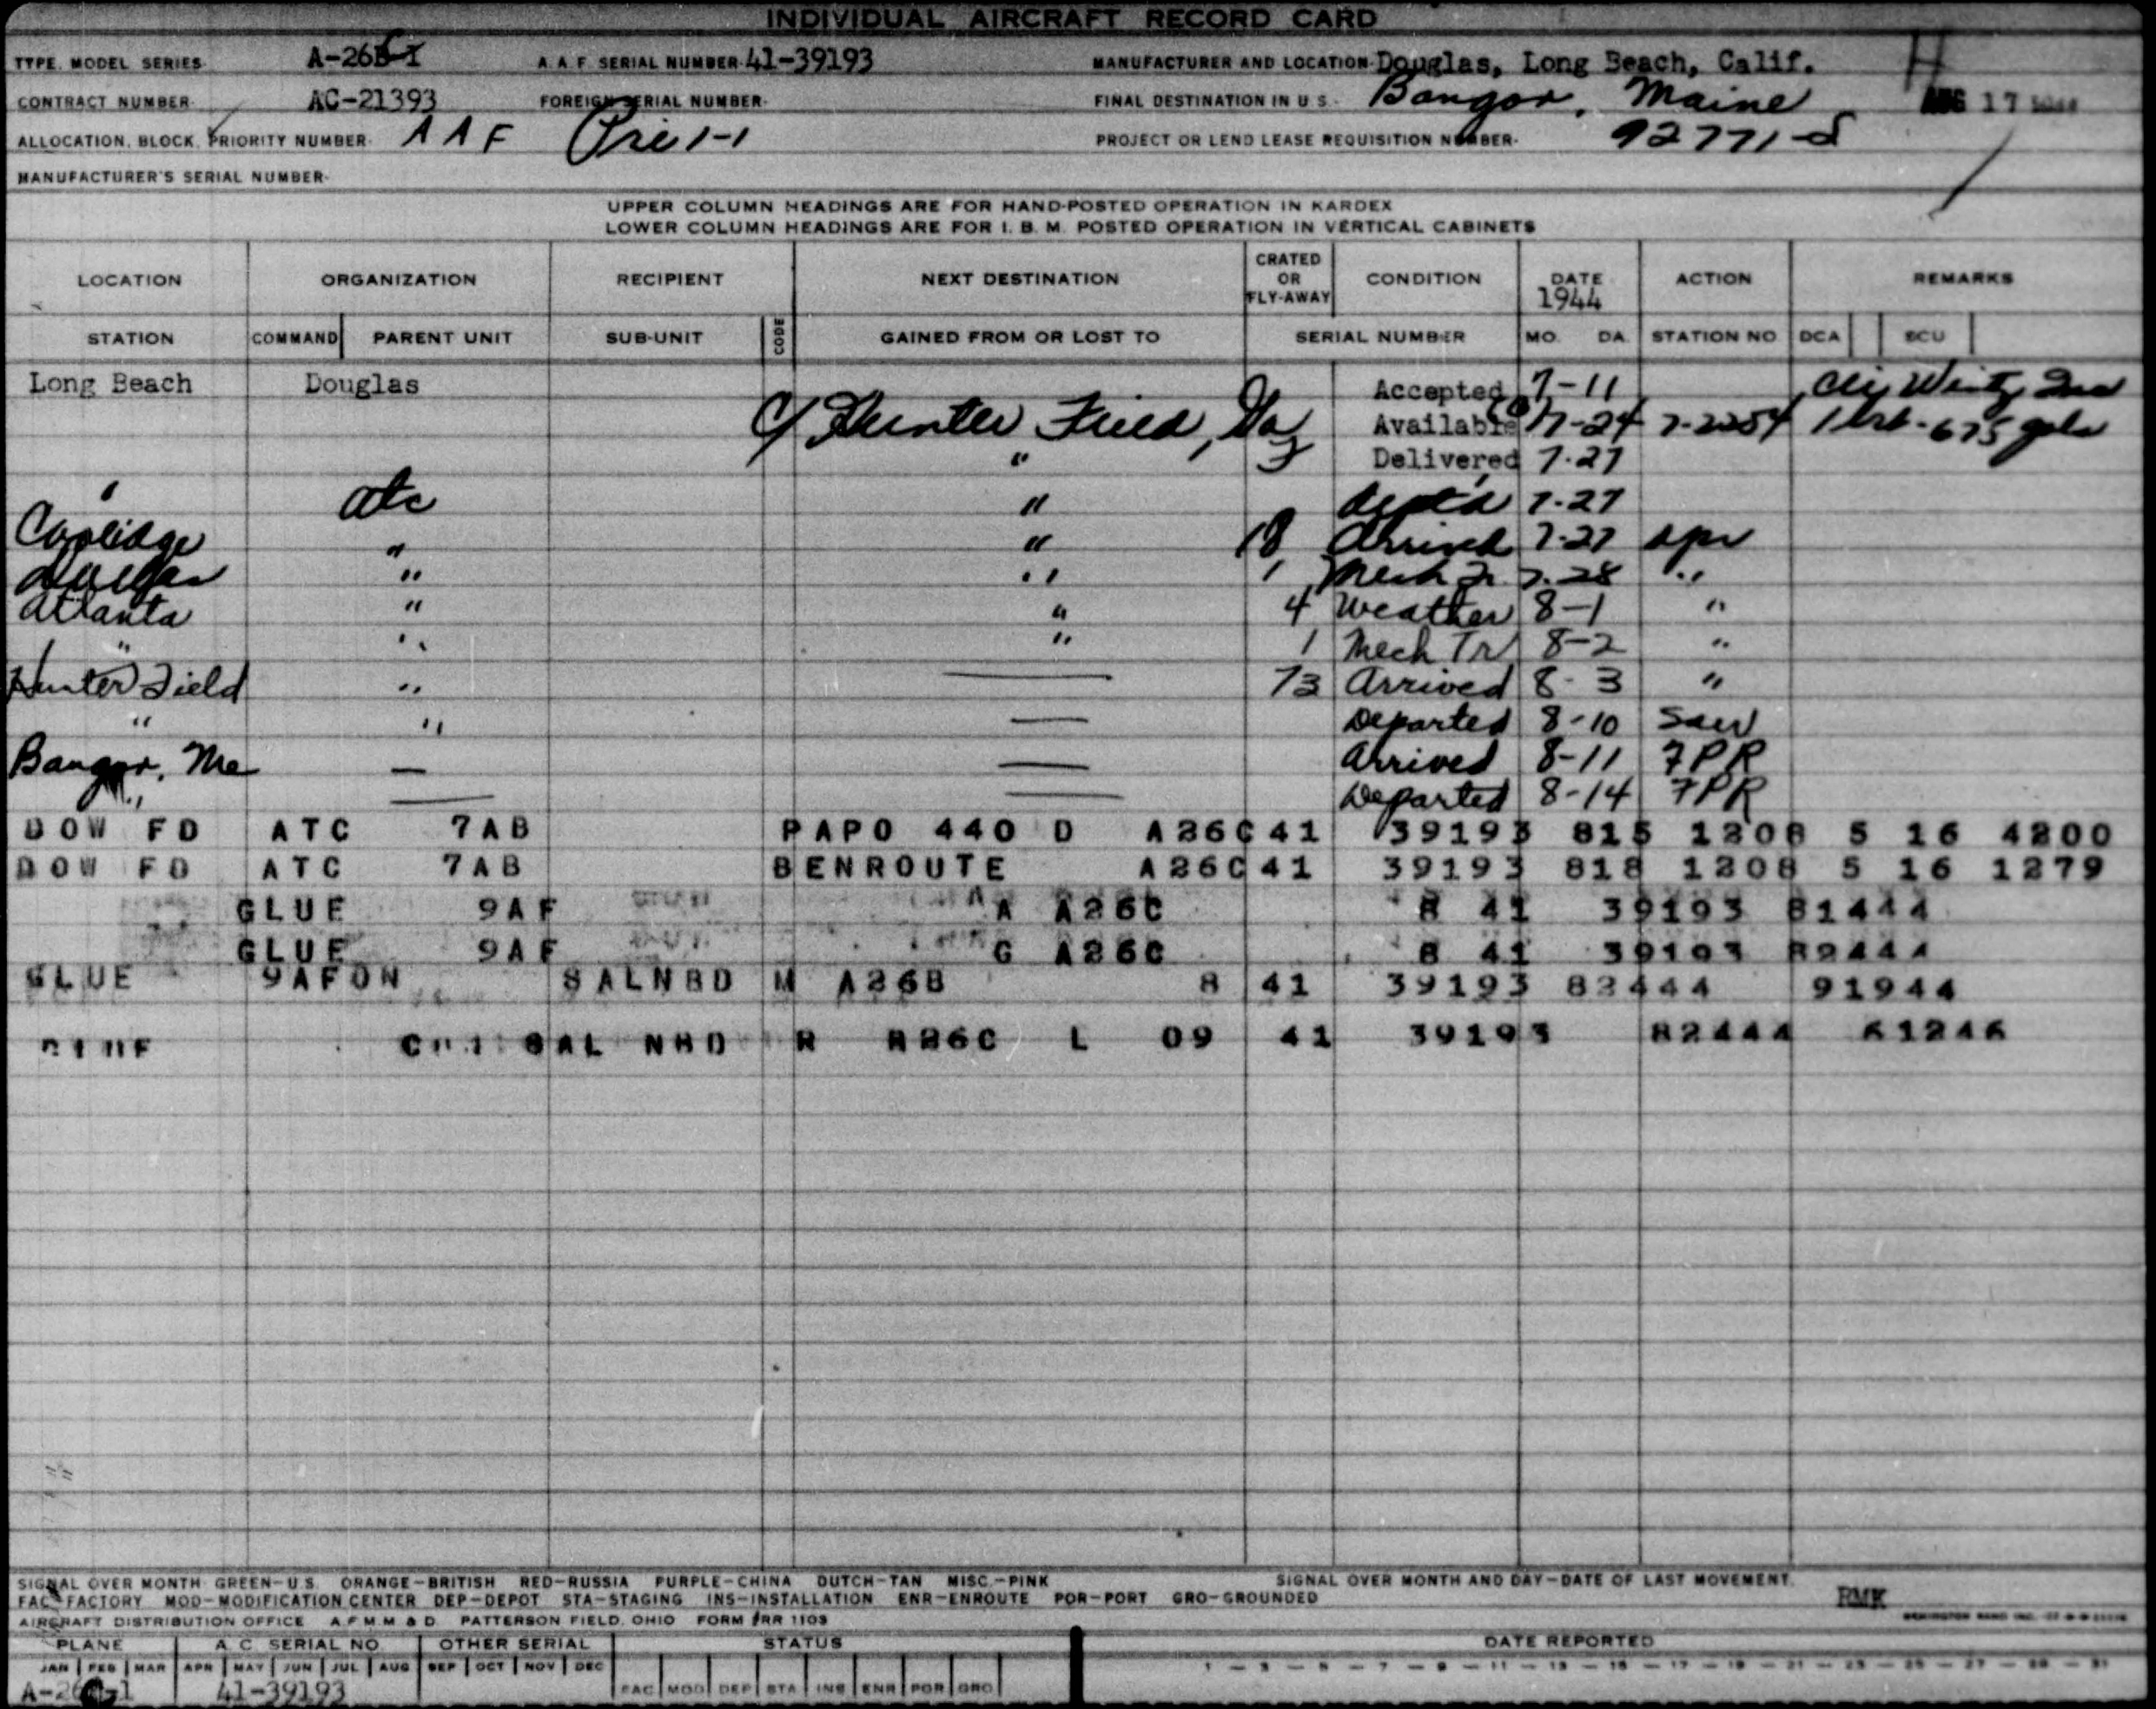 INDIVIDUAL AIRCRAFT RECORD CARD
TYPE, MODEL SERIES- A-26 A.A.F. SERIAL NUMBER- 41-39193 MANUFACTURER AND LOCATION- Douglas, Long Beach, Calif.
CONTRACT NUMBER- AC-21393 FOREIGN SERIAL NUMBER- FINAL DESTINATION IN U S.- Bangor, Maine AUG 17
ALLOCATION, BLOCK, PRIORITY NUMBER- AAF Pri 1-1 PROJECT OR LEND LEASE REQUISITION NUMBER- 92771-S
MANUFACTURER'S SERIAL NUMBER-
UPPER COLUMN HEADINGS ARE FOR HAND-POSTED OPERATION IN KARDEX
LOWER COLUMN HEADINGS ARE FOR I. B. M. POSTED OPERATION IN VERTICAL CABINETS
LOCATION ORGANIZATION RECIPIENT NEXT DESTINATION CRATED OR FLY-AWAY CONDITION DATE 1944 ACTION REMARKS
STATION COMMAND PARENT UNIT SUB-UNIT CODE GAINED FROM OR LOST TO SERIAL NUMBER MO. DA. STATION NO DCA SCU
Long Beach Douglas Accepted 7-11
C/ Hunter Field, Ga Available 7-24 7-2254 675 gals
" Delivered 7-27
" atc " 7-27
Coolidge " " 18 Arrived 7-27
" " 1 Mech Tr 7-28 "
Atlanta " " 4 Weather 8-1 "
" " " 1 Mech Tr 8-2 "
Hunter Field " — 73 Arrived 8-3 "
" " — Departed 8-10 Sav
Bangor, Me — — Arrived 8-11 7PR
" — — Departed 8-14 7PR
DOW FD ATC 7AB PAPO 440 D A26C41 39193 815 1208 5 16 4200
DOW FD ATC 7AB BENROUTE A26C41 39193 818 1208 5 16 1279
GLUE 9AF A A26C 8 41 39193 81444
GLUE 9AF G A26C 8 41 39193 82444
GLUE 9AFON SALNBD M A26B 8 41 39193 82444 91944
SAL NBD R A26C L 09 41 39193 82444 61246
SIGNAL OVER MONTH GREEN-U.S. ORANGE-BRITISH RED-RUSSIA PURPLE-CHINA DUTCH-TAN MISC.-PINK SIGNAL OVER MONTH AND DAY-DATE OF LAST MOVEMENT.
FAC-FACTORY MOD-MODIFICATION CENTER DEP-DEPOT STA-STAGING INS-INSTALLATION ENR-ENROUTE POR-PORT GRO-GROUNDED RMK
AIRCRAFT DISTRIBUTION OFFICE A.F.M.M & D. PATTERSON FIELD, OHIO FORM #RR 1103
PLANE A.C. SERIAL NO. OTHER SERIAL STATUS DATE REPORTED
JAN FEB MAR APR MAY JUN JUL AUG SEP OCT NOV DEC 1 - 3 - 5 - 7 - 9 - 11 - 13 - 15 - 17 - 19 - 21 - 23 - 25 - 27 - 29 - 31
41-39193 FAC MOD DEP STA INS ENR POR GRO